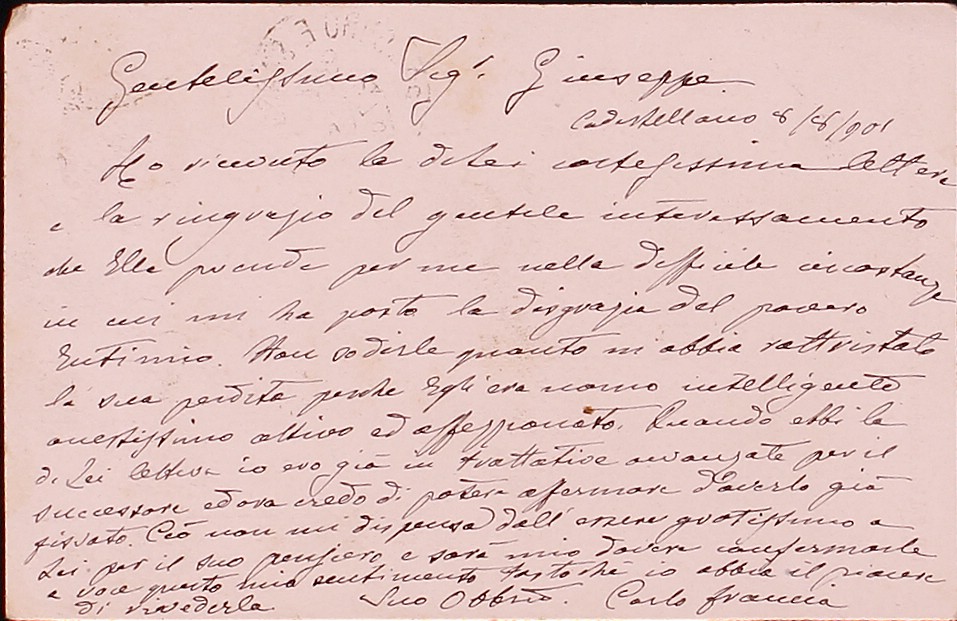 Gentilissimo Sigr. Giuseppe
Castellano 8/8/901
Ho ricevuto la di Lei cortesissima lettera
e la ringrazio del gentile interessamento
che Ella prende per me nella difficile circostanza
in cui mi ha posto la disgrazia del povero
Eutimio. Non so dirle quanto mi abbia rattristato
la sua perdita perchè Egli era uomo intelligente
onestissimo attivo ed affezionato. Quando ebbi la
di Lei lettera io ero già in trattative avanzate per il
successore ed ora credo di potere affermare d'averlo già
fissato. Ciò non mi dispensa dall'essere gratissimo a
Lei per il suo pensiero, e sarà mio dovere confermarle
a voce questo mio sentimento tostochè io abbia il piacere
di rivederla. Suo Obbmo. Carlo Francia